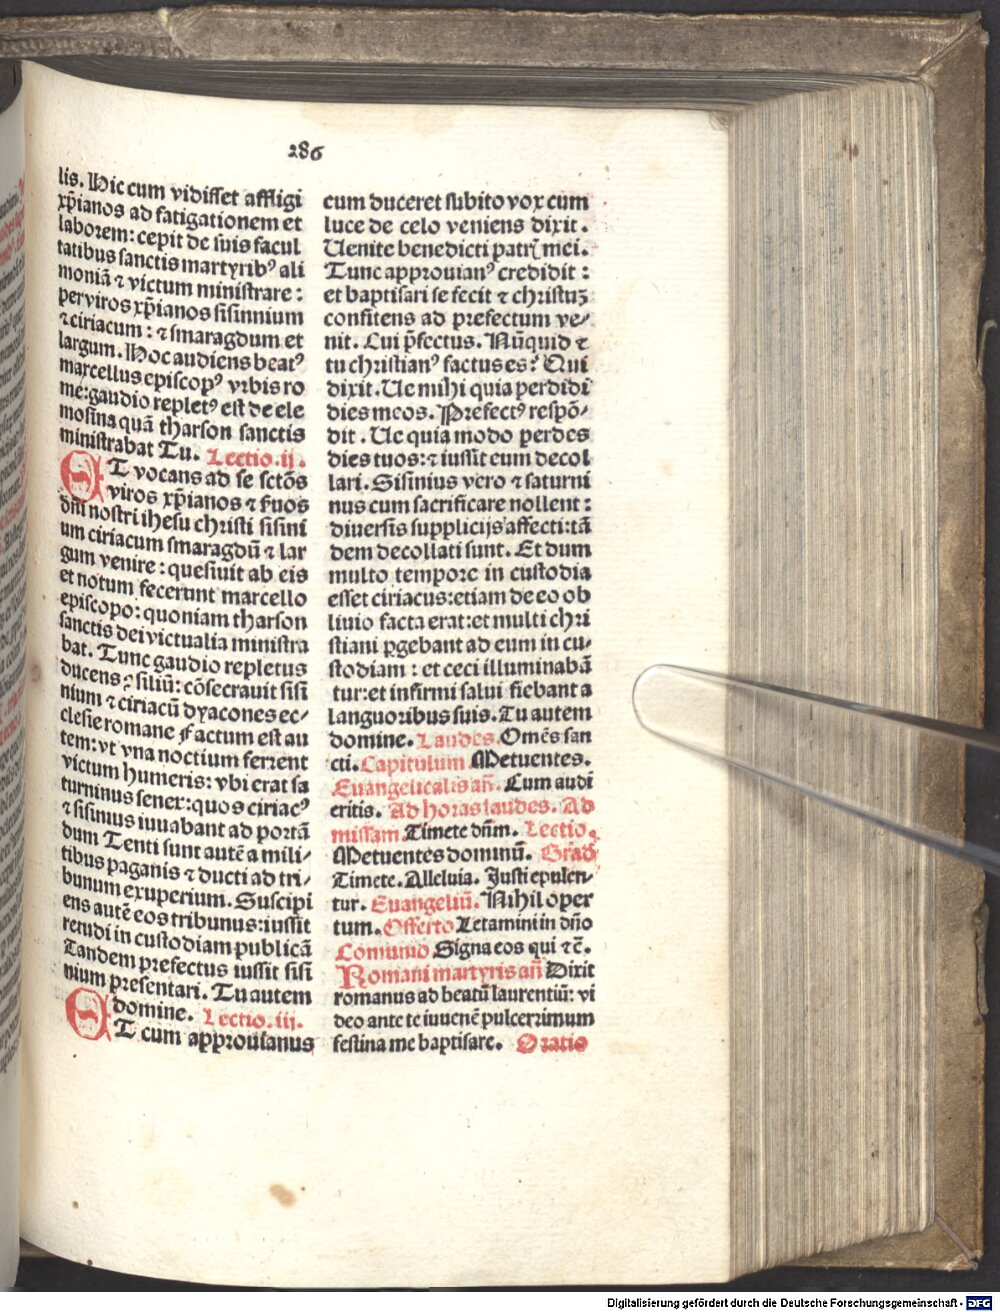 286
lis. Hic cum vidisset affligi
xp̄ianos ad fatigationem et
laborem: cepit de suis facul
tatibus sanctis martyribꝰ ali
moniā ⁊ victum ministrare:
per viros xp̄ianos sisinnium
⁊ ciriacum: ⁊ smaragdum et
largum. Hoc audiens beatꝰ
marcellus episcopꝰ vrbis ro
me: gaudio repletꝰ est de ele
mosina quā tharson sanctis
ministrabat Tu. Lectio .ij.
ET vocans ad se sctōs
viros xp̄ianos ⁊ ẜuos
dn̄i nostri ihesu christi sisini
um ciriacum smaragdū ⁊ lar
gum venire: quesiuit ab eis
et notum fecerunt marcello
episcopo: quoniam tharson
sanctis dei victualia ministra
bat. Tunc gaudio repletus
ducens ɔ̄siliū: cōsecrauit sisi
nium ⁊ ciriacū dyacones ec⸗
clesie romane Factum est au
tem: vt vna noctium ferrent
victum humeris: vbi erat sa
turninus sener: quos ciriacꝰ
⁊ sisinius iuuabant ad portā
dum Tenti sunt autē a mili⸗
tibus paganis ⁊ ducti ad tri⸗
bunum exuperium. Suscipi
ens autē eos tribunus: iussit
retrudi in custodiam publicā
Tandem prefectus iussit sisi
nium presentari. Tu autem
domine. Lectio .iij.
ET cum approuianus
cum duceret subito vox cum
luce de celo veniens dixit.
Uenite benedicti patrꝭ mei.
Tunc approuianꝰ credidit:
et baptisari se fecit ⁊ christuꝫ
confitens ad prefectum ve⸗
nit. Cui p̄fectus. Nūquid ⁊
tu christianꝰ factus es? Qui
dixit. Ue mihi quia perdidi
dies meos. Prefectꝰ respō⸗
dit. Ue quia modo perdes
dies tuos: ⁊ iussit eum decol
lari. Sisinius vero ⁊ saturni
nus cum sacrificare nollent:
diuersis supplicijs affecti: tā
dem decollati sunt. Et dum
multo tempore in custodia
esset ciriacus: etiam de eo ob
liuio facta erat: et multi chri
stiani ꝑgebant ad eum in cu⸗
stodiam: et ceci illuminabā
tur: et infirmi salui fiebant a
languoribus suis. Tu autem
domine. Laudes. Omēs san
cti. Capitulum Metuentes.
Euangelicalis an̄. Cum audi
eritis. Ad horas laudes. Ad
missam Timete dn̄m. Lectio.
Metuentes dominū. Grad̄
Timete. Alleluia. Justi epulen⸗
tur. Euangeliū. Nihil oper
tum. Offerto Letamini in dn̄o
Comunio Signa eos qui ⁊c̄.
Romani martyris an̄ Dixit
romanus ad beatū laurentiū: vi
deo ante te iuuenē pulcerrimum
festina me baptisare. Oratio
Digitalisierung gefördert durch die Deutsche Forschungsgemeinschaft - DFG